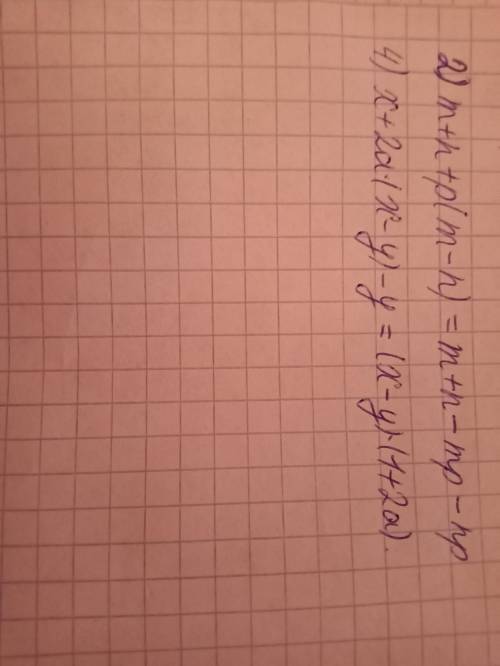 2) m+n+p(m-n) = m+n-mp-np
4) x+2a·(x-y)-y = (x-y)·(1+2a).